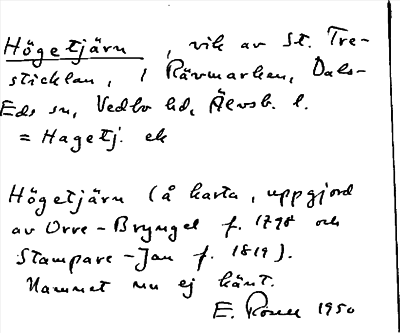 Högetjärn, vik av St. Tre-
sticklan, i Rävmarken, Dals-
Eds sn, Vedbo hd, Älvsb. l.
= Hagetj. ek
Högetjärn (å karta, uppgjord
av Orre-Bryngel f. 1798 och
Stampare-Jan f. 1819).
Namnet nu ej känt.
E. 1950